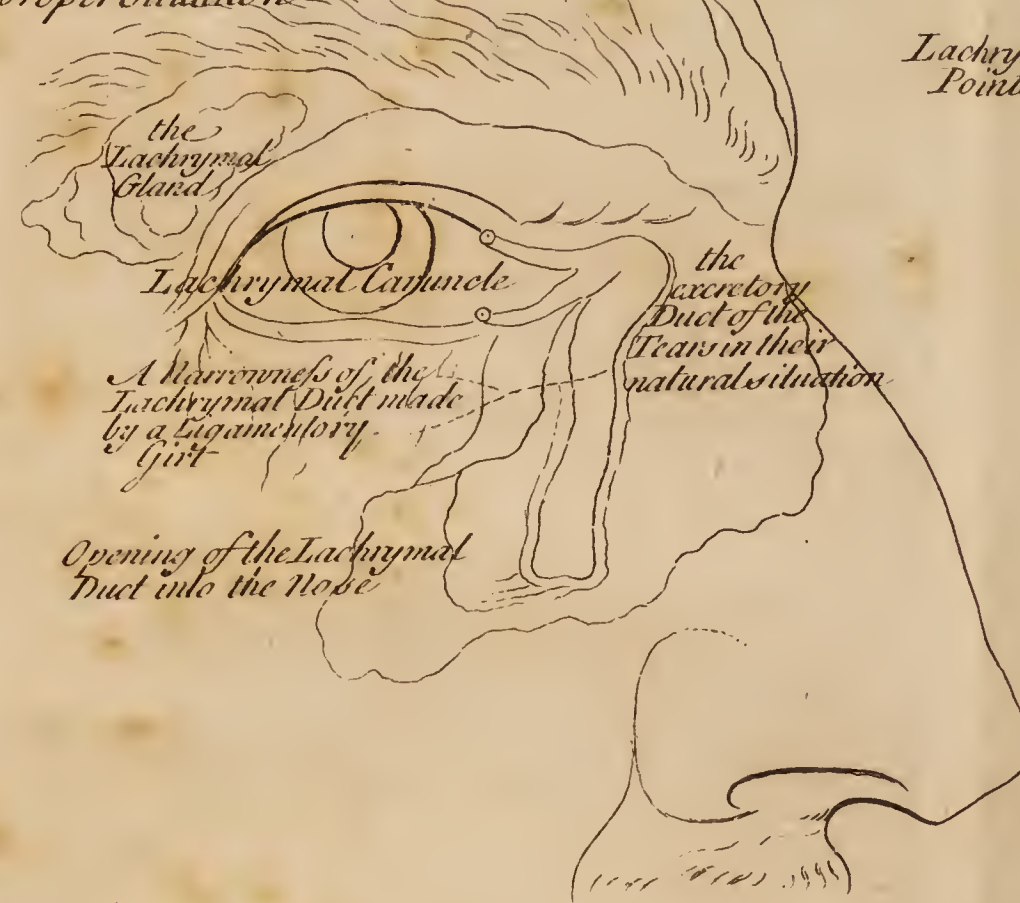 proper situation
Lachry
Point
the
Lachrymal
Gland
Lachrymal Caruncle
the
excretory
Duct of the
Tears in their
natural situation
A Narrowneſs of the
Lachrymal Duct made
by a Ligamentory
Girt
Opening of the Lachrymal
Duct into the Nose